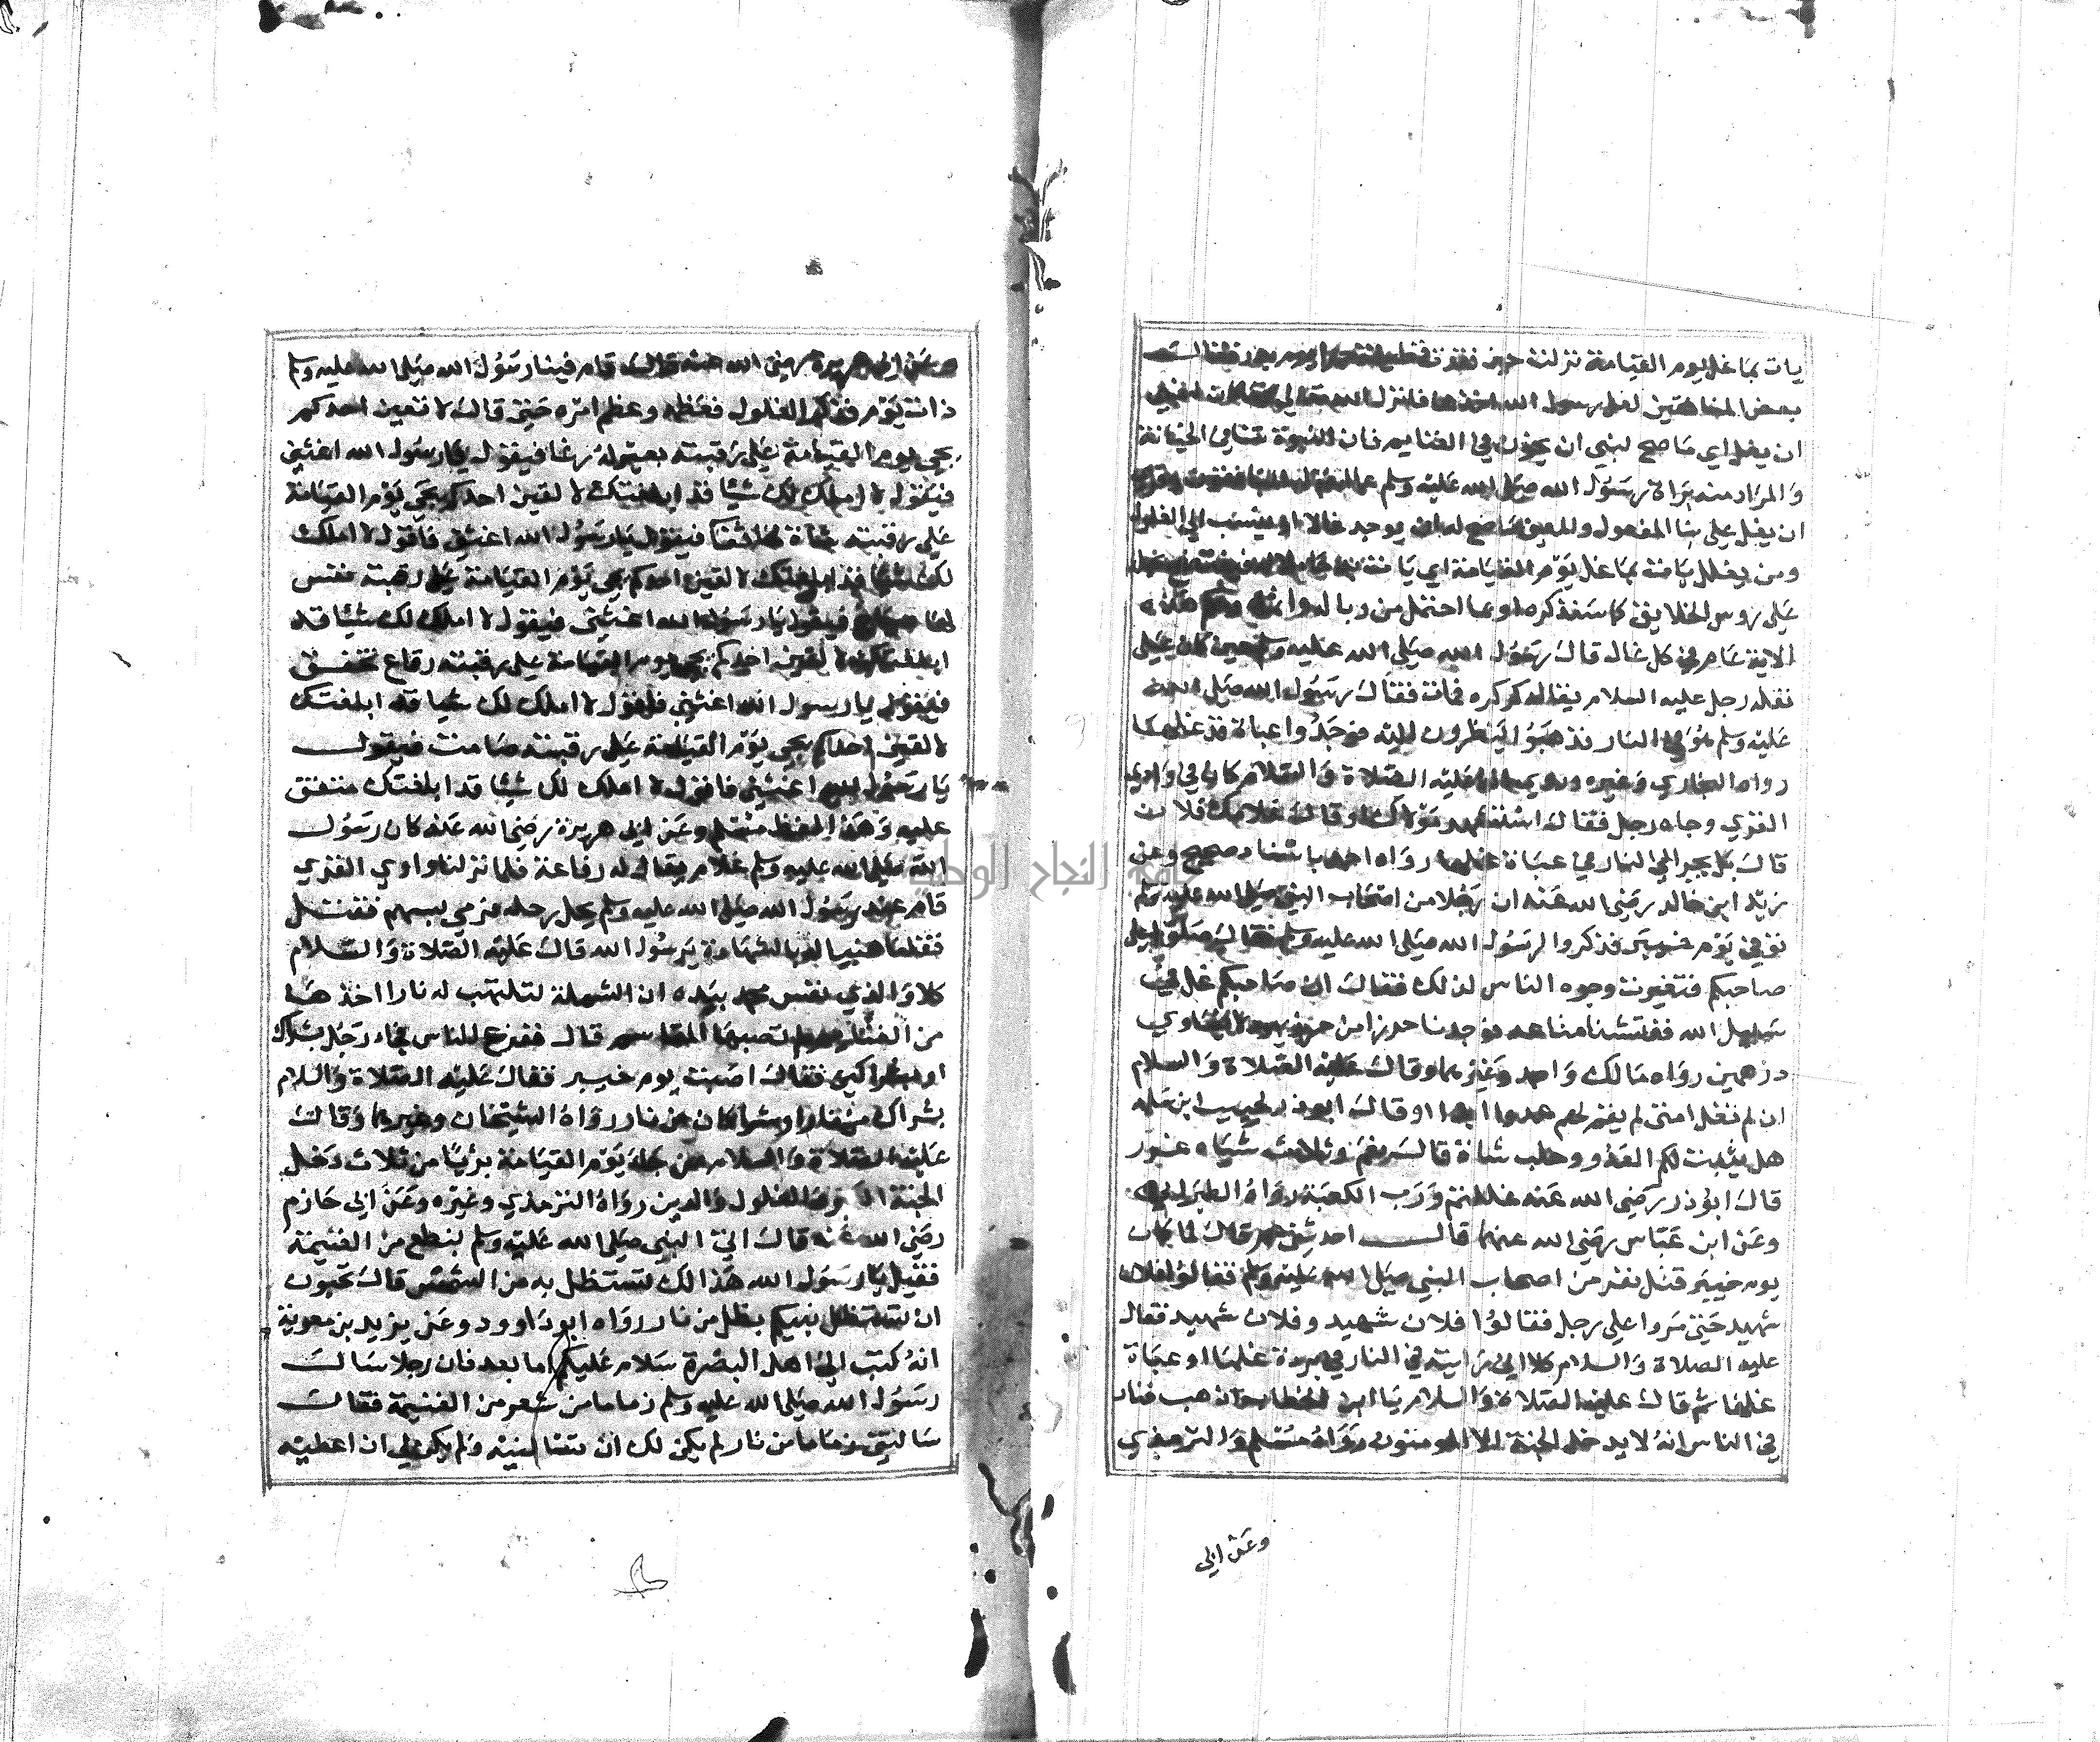 يات بما غل يوم القيامة نزلت حين فقدت قطيفة حمرا يوم بدر فقالـ
بعض المنافقين لعل رسول الله اخذها فانزل الله تعالى
ان يغل اي ما صح لنبي ان يخون في الغنايم فان النبوة تنافي الخيانة
والمراد منه براة رسول الله صلى الله عليه وسلم عما
ان يغل على بنا المفعول والمعنى ما صح له ان يوجد غالا او ينسب الى الغلول
ومن يغلل يات بما غل يوم القيامة اي يات
على روس الخلايق كما سنذكره او بما احتمل من وباله واثمه وحكم هذه
الاية عام في كل غال قال رسول الله صلى الله عليه وسلم حين كان على
ثقله رجل عليه السلام يقال له كركره فمات فقال رسول الله صلى الله
عليه وسلم هو في النار فذهبوا ينظرون اليه فوجدوا عباة قد غلها
رواه البخاري وغيره عليه الصلاة والسلام كان في وادي
القري وجاه رجل فقال استشهد مولاك او قال غلامك فلان
قال بل يجر الى النار في عباة غلها رواه احمد باسناد صحيح وعن
زيد ابن خالد رضى الله عنه ان رجلا من اصحاب النبي صلى الله عليه وسلم
توفي يوم خيبر فذكروا لرسول الله صلى الله عليه وسلم فقال صلوا على
صاحبكم فتغيرت وجوه الناس لذلك فقال ان صاحبكم غل في
سبيل الله ففتشنا متاعه فوجدنا خرزا من خرز يهود لا يساوي
درهمين رواه مالك واحمد وغيرهما وقال عليه الصلاة والسلام
ان لم تغل امتي لم يقم لهم عدو ابدا وقال ابو ذر لحبيب ابن مسلمة
هل يثبت لكم العدو حلب شاة قال نعم وثلاث شياه غزر
قال ابو ذر رضى الله عنه غللتم ورب الكعبة رواه الطبراني
وعن ابن عباس رضى الله عنهما قالـ حدثني عمر قال لما كان
يوم خيبر قتل نفر من اصحاب النبي صلى الله عليه وسلم فقالوا فلان
شهيد حتى مروا على رجل فقالوا فلان شهيد وفلان شهيد فقال
عليه الصلاة والسلام كلا اني رايته في النار في بردة غلها او عباة
غلها ثم قال عليه الصلاة والسلام يا ابن الخطاب اذهب فناد
في الناس انه لا يدخل الجنة الا المومنون رواه مسلم والترمذي
وعن ابي
وعن ابي هريرة رضى الله عنه قالـ قام فينا رسول الله صلى الله عليه وسلم
ذات يوم فذكر الغلول فعظمه وعظم امره حتى قال لا القين احدكم
يجي يوم القيامة على رقبته بعير له رغا فيقول يا رسول الله اغثني
فيقول لا املك لك شيئا قد ابلغتك لا القين احدكم يجي يوم القيامة
على رقبته شاة لها ثغا فيقول يا رسول الله اغثني فاقول لا املك
لك شيئا قد ابلغتك لا القين احدكم يجي يوم القيامة على رقبته نفس
لها صياح فيقول يا رسول الله اغثني فيقول لا املك لك شيئا قد
ابلغتك لا القين احدكم يجي يوم القيامة على رقبته رقاع تخفق
فيقول يا رسول الله اغثني فاقول لا املك لك شيا قد ابلغتك
لا القين احدكم يجي يوم القيامة على رقبته صامت فيقول
يا رسول الله اغثني فاقول لا املك لك شيئا قد ابلغتك متفق
عليه وهذا لفظ مسلم وعن ابي هريرة رضى الله عنه كان رسول
الله صلى الله عليه وسلم غلام يقال له رفاعة فلما نزلنا وادي القري
قام عبد رسول الله صلى الله عليه وسلم يحل رحله فرمي بسهم فقتل
فقلنا هنييا له بالشهادة يرسول الله قال عليه الصلاة والسلام
كلا والذي نفس محمد بيده ان الشملة لتلتهب له نارا اخذها
من الغنايم لم تصبها المقاسم قال ففزع الناس فجاء رجل بشراك
او شراكين فقال اصبت يوم خيبر فقال عليه الصلاة والسلام
بشراك من نار او شراكان من نار رواه الشيخان وغيرهما وقال
عليه الصلاة والسلام من جاء يوم القيامة بريئا من ثلاث دخل
الجنة الكبر والغلول والدين رواه الترمذي وغيره وعن ابي حازم
رضى الله عنه قال اتي النبي صلى الله عليه وسلم بنطع من الغنيمة
فقيل يا رسول الله هذا لك تستظل به من الشمس قال تحبون
ان يستظل نبيكم بظل من نار رواه ابو داوود وعن يزيد بن معوية
انه كتب الى اهل البصرة سلام عليكم اما بعد فان رجلا سال
رسول الله صلى الله عليه وسلم زماما من شعر من الغنيمة فقال
سالتني زماما من نار لم يكن لك ان تسالنيه ولم يكن لي ان اعطيه
جامعة النجاح الوطنية